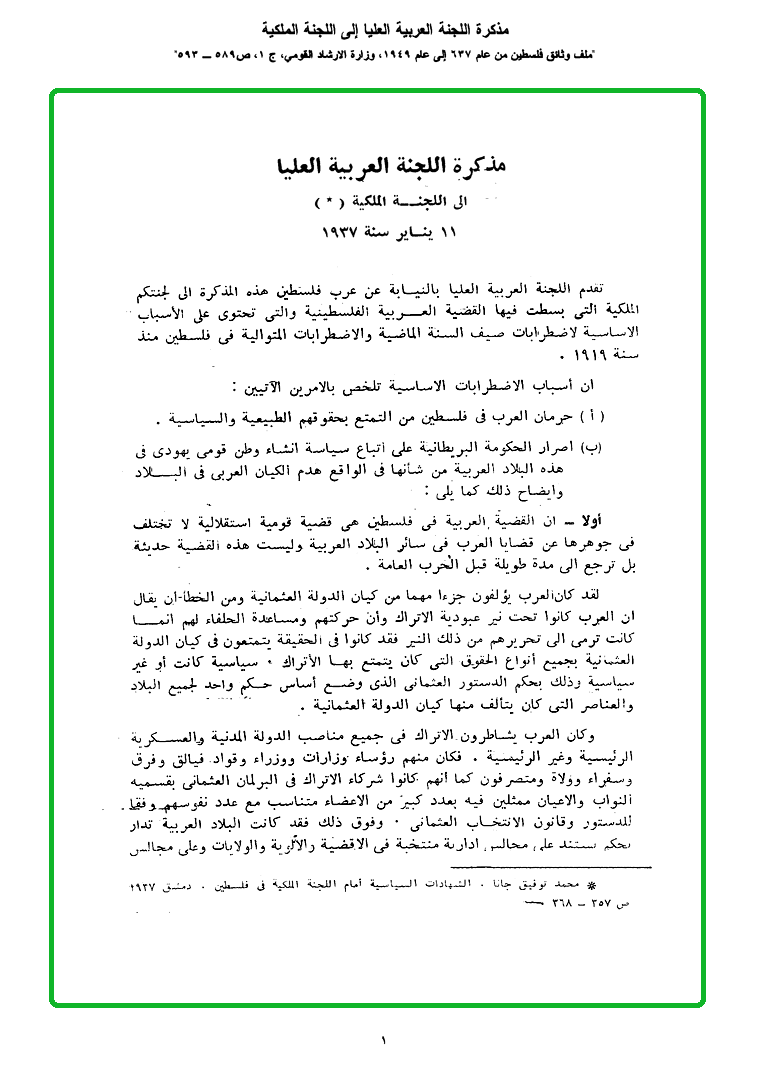 مذكرة اللجنة العربية العليا إلى اللجنة الملكية
"ملف وثائق فلسطين من عام ٦٣٧ إلى عام ١٩٤٩، وزارة الارشاد القومي، ج ١، ص٥٨٩ – ٥٩٣"
مذكرة اللجنة العربية العليا
الى اللجنـــة الملكية ( * )
١١ ينـاير سنة ١٩٣٧
تقدم اللجنة العربية العليا بالنيـابة عن عرب فلسطين هذه المذكرة الى لجنتكم
الملكية التى بسطت فيها القضية العـربية الفلسطينية والتى تحتوى على الأسباب
الاساسية لاضطرابات صيف السنة الماضية والاضطرابات المتوالية فى فلسطين منذ
سنة ١٩١٩ .
ان أسباب الاضطرابات الاساسية تلخص بالامرين الآتيين :
( أ ) حرمان العرب فى فلسطين من التمتع بحقوقهم الطبيعية والسياسية .
(ب) اصرار الحكومة البريطانية على أتباع سياسة انشاء وطن قومى يهودى فى
هذه البلاد العربية من شأنها فى الواقع هدم الكيان العربى فى البـــلاد
وايضاح ذلك كما يلى :
أولا – ان القضية العربية فى فلسطين هى قضية قومية استقلالية لا تختلف
فى جوهرها عن قضايا العرب فى سائر البلاد العربية وليست هذه القضية حديثة
بل ترجع الى مدة طويلة قبل الحرب العامة .
لقد كان العرب يؤلفون جزءا مهما من كيان الدولة العثمانية ومن الخطأ ان يقال
ان العرب كانوا تحت نير عبودية الاتراك وأن حركتهم ومساعدة الحلفاء لهم انمـــا
كانت ترمى الى تحريرهم من ذلك النير فقد كانوا فى الحقيقة يتمتعون فى كيان الدولة
العثمانية بجميع أنواع الحقوق التى كان يتمتع بهـا الأتراك . سياسية كانت أو غير
سياسية وذلك بحكم الدستور العثمانى الذى وضـع أساس حـكم واحد لجميع البلاد
والعناصر التى كان يتألف منها كيان الدولة العثمانية .
وكان العرب يشـاطرون الاتراك فى جميع مناصب الدولة المدنية والعسـكرية
الرئيسية وغير الرئيسية . فكان منهم رؤساء وزارات ووزراء وقواد فيالق وفرق
وسفراء وولاة ومتصرفون كما أنهم كانوا شركاء الاتراك فى البرلمان العثمانى بقسميه
النواب والاعيان ممثلين فيه بعدد كبير من الاعضاء متناسب مع عدد نفوسهم وفقا
للدستور وقانون الانتخاب العثمانى . وفوق ذلك فقد كانت البلاد العربية تدار
بحكم يستند على مجالس ادارية منتخبة فى الاقضية والألوية والولايات وعلى مجالس
* محمد توفيق جانا . الشهادات السياسية أمام اللجنة الملكية فى فلسطين . دمشق ١٩٣٧
ص ٢٥٧ – ٣٦٨
١